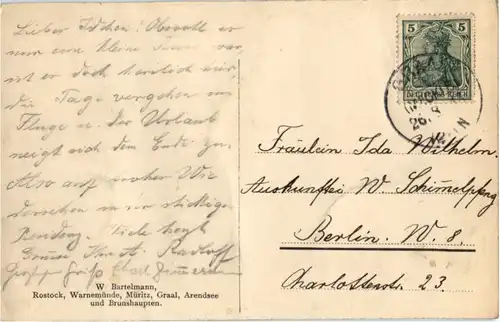 Lieber Idchen! Obwohl es
nur eine kleine war,
ist es doch herrlich hier,
die Tage vergehen im
Fluge u. der Urlaub
neigt sich dem Ende zu.
Also auf frohes Wie
dersehen in der stickigen
Residenz. Viele herzl.
Grüsse Ihre A. Radloff
5 5
DEUTSCHES REICH
GRAAL
26
Fräulein Ida Wilhelm.
Auskunftei W. Schimmelpfeng
Berlin. W. 8.
Charlottenstr. 23.
W Bartelmann,
Rostock, Warnemünde, Müritz, Graal, Arendsee
und Brunshaupten.